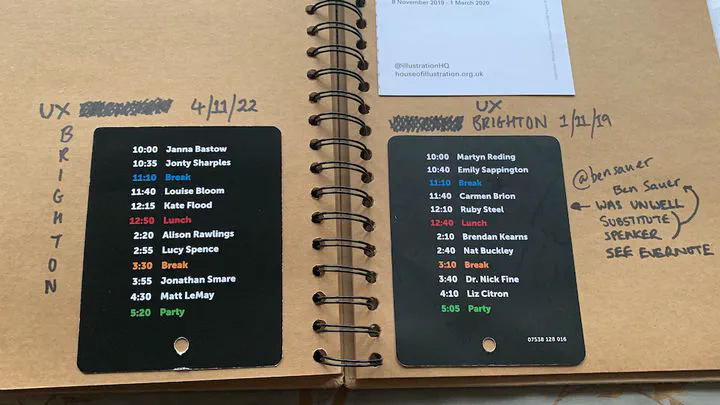 8 November 2019 - 1 March 2020
@illustrationHQ
houseofillustration.org.uk
UX 4/11/22
BRIGHTON
10:00 Janna Bastow
10:35 Jonty Sharples
11:10 Break
11:40 Louise Bloom
12:15 Kate Flood
12:50 Lunch
2:20 Alison Rawlings
2:55 Lucy Spence
3:30 Break
3:55 Jonathan Smare
4:30 Matt LeMay
5:20 Party
UX
BRIGHTON 1/11/19
10:00 Martyn Reding
10:40 Emily Sappington
11:10 Break
11:40 Carmen Brion
12:10 Ruby Steel
12:40 Lunch
2:10 Brendan Kearns
2:40 Nat Buckley
3:10 Break
3:40 Dr. Nick Fine
4:10 Liz Citron
5:05 Party
07538 128 016
@bensauer
Ben Sauer
← WAS UNWELL
SUBSTITUTE
SPEAKER
SEE EVERNOTE